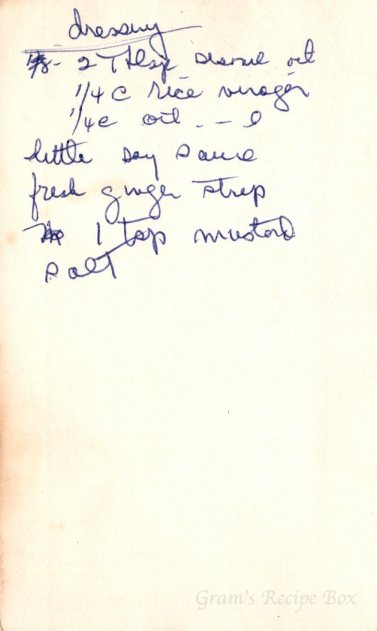 dressing
2 Tblsp sesame oil
1/4 c rice vinager
1/4 c oil
little soy sauce
fresh ginger strip
1 tsp mustard
salt
Gram's Recipe Box